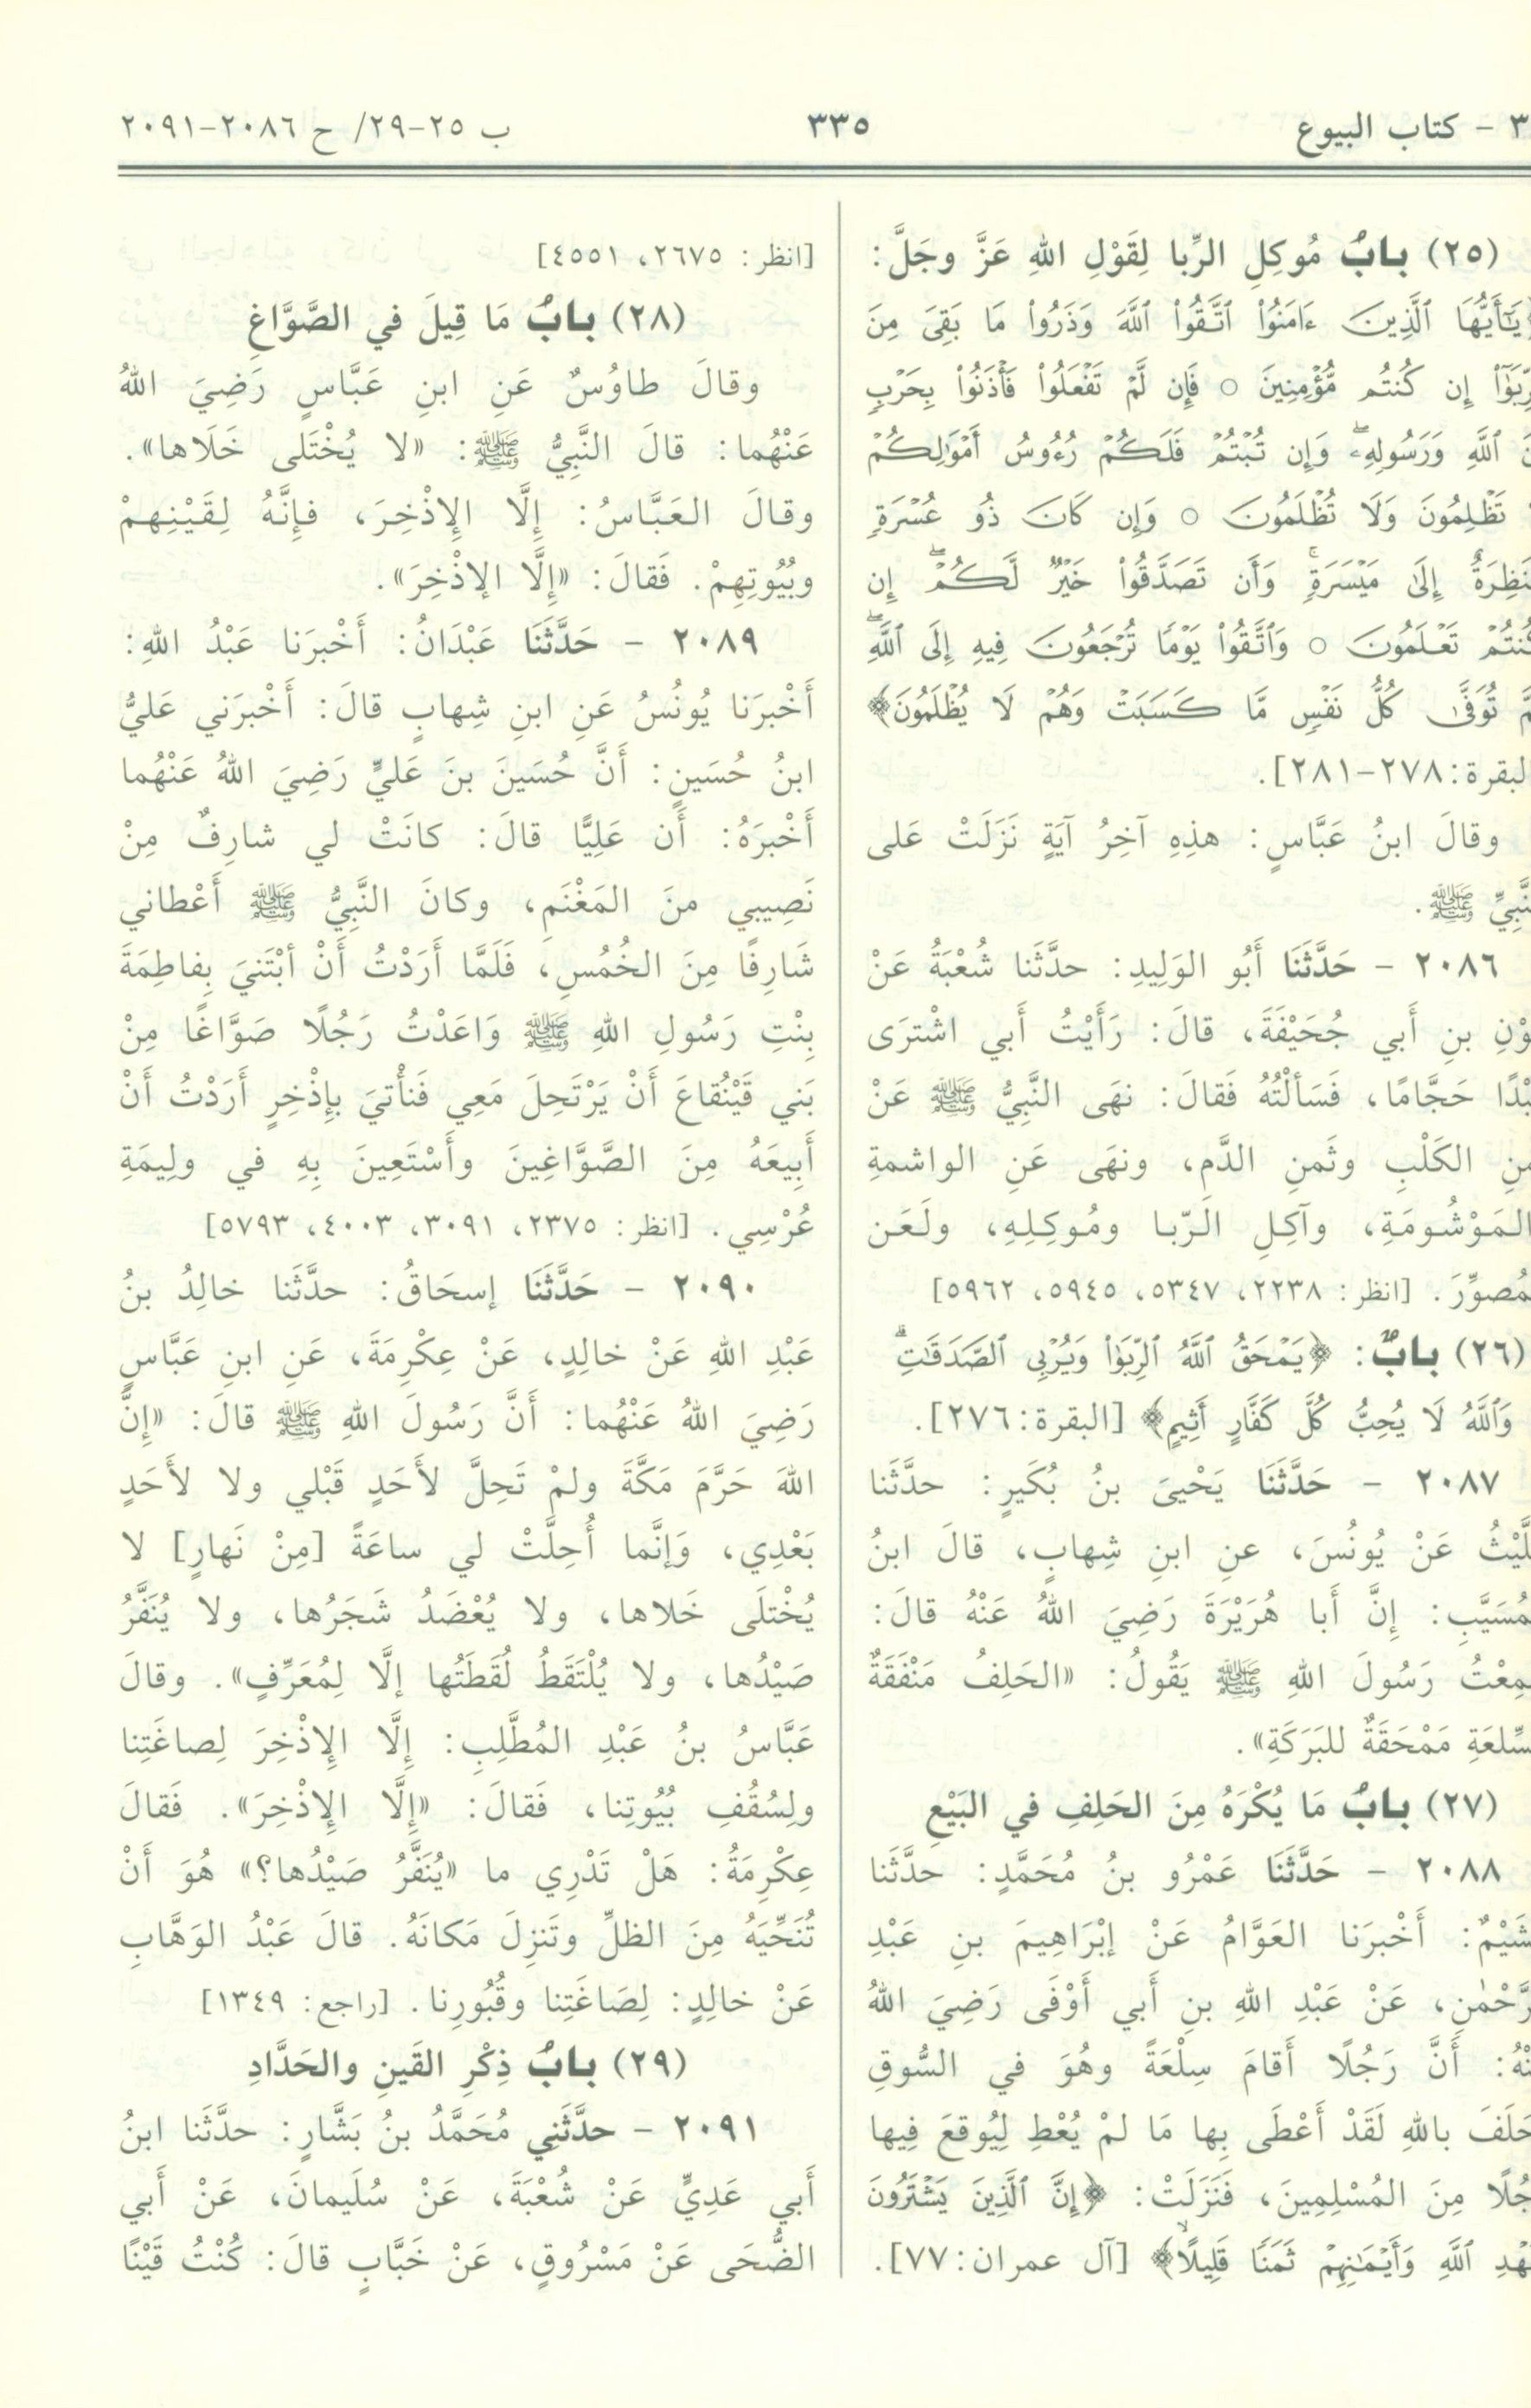 ٣ - كتاب البيوع ٣٣٥ ب ٢٥-٢٩/ ح ٢٠٨٦-٢٠٩١
(٢٥) بابُ مُوكِلِ الرِّبا لِقَوْلِ اللهِ عَزَّ وجَلَّ:
﴿يَٰٓأَيُّهَا ٱلَّذِينَ ءَامَنُوا۟ ٱتَّقُوا۟ ٱللَّهَ وَذَرُوا۟ مَا بَقِىَ مِنَ
إِن كُنتُم مُّؤْمِنِينَ ○ فَإِن لَّمْ تَفْعَلُوا۟ فَأْذَنُوا۟ بِحَرْبٍ
ٱللَّهِ وَرَسُولِهِۦ ۖ وَإِن تُبْتُمْ فَلَكُمْ رُءُوسُ أَمْوَٰلِكُمْ
تَظْلِمُونَ وَلَا تُظْلَمُونَ ○ وَإِن كَانَ ذُو عُسْرَةٍ
نَظِرَةٌ إِلَىٰ مَيْسَرَةٍ ۚ وَأَن تَصَدَّقُوا۟ خَيْرٌ لَّكُمْ ۖ إِن
كُنتُمْ تَعْلَمُونَ ○ وَٱتَّقُوا۟ يَوْمًا تُرْجَعُونَ فِيهِ إِلَى ٱللَّهِ ۖ
تُوَفَّىٰ كُلُّ نَفْسٍ مَّا كَسَبَتْ وَهُمْ لَا يُظْلَمُونَ﴾
البقرة: ٢٧٨-٢٨١].
وقالَ ابنُ عَبَّاسٍ: هذِهِ آخِرُ آيَةٍ نَزَلَتْ عَلى
النَّبِيِّ ﷺ.
٢٠٨٦ - حَدَّثَنَا أَبُو الوَلِيدِ: حدَّثَنا شُعْبَةُ عَنْ
وْنِ بنِ أَبي جُحَيْفَةَ، قالَ: رَأَيْتُ أَبي اشْتَرَى
بْدًا حَجَّامًا، فَسَألْتُهُ فَقالَ: نهَى النَّبِيُّ ﷺ عَنْ
مَنِ الكَلْبِ وثَمنِ الدَّمِ، ونهَى عَنِ الواشمةِ
المَوْشُومَةِ، وآكِلِ الَرّبا ومُوكِلِهِ، ولَعَن
مُصوِّرَ. [انظر: ٢٢٣٨، ٥٣٤٧، ٥٩٤٥، ٥٩٦٢]
(٢٦) بابٌ: ﴿يَمْحَقُ ٱللَّهُ ٱلرِّبَوٰا۟ وَيُرْبِى ٱلصَّدَقَٰتِ ۗ
وَٱللَّهُ لَا يُحِبُّ كُلَّ كَفَّارٍ أَثِيمٍ﴾ [البقرة: ٢٧٦].
٢٠٨٧ - حَدَّثَنَا يَحْيىَ بنُ بُكَيرٍ: حدَّثَنا
لَّيْثُ عَنْ يُونُسَ، عنِ ابنِ شِهابٍ، قالَ ابنُ
مُسَيَّبِ: إِنَّ أَبا هُرَيْرَةَ رَضِيَ اللهُ عَنْهُ قالَ:
مِعْتُ رَسُولَ اللهِ ﷺ يَقُولُ: «الحَلِفُ مَنْفَقَةٌ
سِّلعَةِ مَمْحَقَةٌ للبَرَكَةِ».
(٢٧) بابُ مَا يُكْرَهُ مِنَ الحَلِفِ في البَيْعِ
٢٠٨٨ - حَدَّثَنَا عَمْرُو بنُ مُحَمَّدٍ: حدَّثَنا
شَيْمٌ: أَخْبرَنا العَوَّامُ عَنْ إبْرَاهِيمَ بنِ عَبْدِ
رَّحْمٰنِ، عَنْ عَبْدِ اللهِ بنِ أَبي أَوْفَى رَضِيَ اللهُ
نْهُ: أَنَّ رَجُلًا أَقامَ سِلْعَةً وهُوَ في السُّوقِ
حَلَفَ باللهِ لَقَدْ أَعْطَى بِها مَا لمْ يُعْطِ لِيُوقعَ فِيها
جُلًا مِنَ المُسْلِمِينَ، فَنَزَلَتْ: ﴿إِنَّ ٱلَّذِينَ يَشْتَرُونَ
عَهْدِ ٱللَّهِ وَأَيْمَٰنِهِمْ ثَمَنًا قَلِيلًا﴾ [آل عمران: ٧٧].
[انظر: ٢٦٧٥، ٤٥٥١]
(٢٨) بابُ مَا قِيلَ في الصَّوَّاغِ
وقالَ طاوُسٌ عَنِ ابنِ عَبَّاسٍ رَضِيَ اللهُ
عَنْهُما: قالَ النَّبِيُّ ﷺ: «لا يُخْتَلى خَلَاها».
وقالَ العَبَّاسُ: إِلَّا الإِذْخِرَ، فإِنَّهُ لِقَيْنِهِمْ
وبُيُوتِهِمْ. فَقالَ: «إِلَّا الإذْخِرَ».
٢٠٨٩ - حَدَّثَنَا عَبْدَانُ: أَخْبرَنا عَبْدُ اللهِ:
أَخْبرَنا يُونُسُ عَنِ ابنِ شِهابٍ قالَ: أَخْبرَني عَليُّ
ابنُ حُسَينٍ: أَنَّ حُسَينَ بنَ عَليٍّ رَضِيَ اللهُ عَنْهُما
أَخْبرَهُ: أَن عَلِيًّا قالَ: كانَتْ لي شارِفٌ مِنْ
نَصِيبي منَ المَغْنَمِ، وكانَ النَّبِيُّ ﷺ أَعْطاني
شَارِفًا مِنَ الخُمُسِ، فَلَمَّا أَرَدْتُ أَنْ أبْتَنيَ بِفاطِمَةَ
بِنْتِ رَسُولِ اللهِ ﷺ وَاعَدْتُ رَجُلًا صَوَّاغًا مِنْ
بَني قَيْنُقاعَ أَنْ يَرْتَحِلَ مَعِي فَنأْتيَ بِإِذْخِرٍ أَرَدْتُ أَنْ
أَبِيعَهُ مِنَ الصَّوَّاغِينَ وأَسْتَعِينَ بِهِ في ولِيمَةِ
عُرْسِي. [انظر: ٢٣٧٥، ٣٠٩١، ٤٠٠٣، ٥٧٩٣]
٢٠٩٠ - حَدَّثَنَا إسحَاقُ: حدَّثَنا خالِدُ بنُ
عَبْدِ اللهِ عَنْ خالِدٍ، عَنْ عِكْرِمَةَ، عَنِ ابنِ عَبَّاسٍ
رَضِيَ اللهُ عَنْهُما: أَنَّ رَسُولَ اللهِ ﷺ قالَ: «إِنَّ
اللهَ حَرَّمَ مَكَّةَ ولمْ تَحِلَّ لأَحَدٍ قَبْلي ولا لأَحَدٍ
بَعْدِي، وَإِنَّما أُحِلَّتْ لي ساعَةً [مِنْ نَهارٍ] لا
يُخْتلَى خَلاها، ولا يُعْضَدُ شَجَرُها، ولا يُنَفَّرُ
صَيْدُها، ولا يُلْتَقَطُ لُقَطَتُها إلَّا لِمُعَرِّفٍ». وقالَ
عَبَّاسُ بنُ عَبْدِ المُطَّلِبِ: إِلَّا الإِذْخِرَ لِصاغَتِنا
ولِسُقُفِ بُيُوتِنا، فَقالَ: «إِلَّا الإِذْخِرَ». فَقالَ
عِكْرِمَةُ: هَلْ تَدْرِي ما «يُنَفَّرُ صَيْدُها؟» هُوَ أَنْ
تُنَحِّيَهُ مِنَ الظلِّ وتَنزِلَ مَكانَهُ. قالَ عَبْدُ الوَهَّابِ
عَنْ خالِدٍ: لِصَاغَتِنا وقُبُورِنا. [راجع: ١٣٤٩]
(٢٩) بابُ ذِكْرِ القَينِ والحَدَّادِ
٢٠٩١ - حدَّثَنِي مُحَمَّدُ بنُ بَشَّارٍ: حدَّثَنا ابنُ
أَبي عَدِيٍّ عَنْ شُعْبَةَ، عَنْ سُلَيمانَ، عَنْ أَبي
الضُّحَى عَنْ مَسْرُوقٍ، عَنْ خَبَّابٍ قالَ: كُنْتُ قَيْنًا